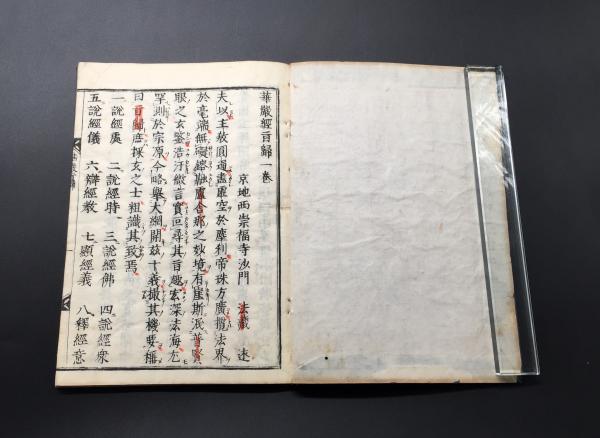 華嚴經旨歸一卷
京地西崇福寺沙門 法藏 述
夫以主教圓通盡虛空於塵剎帝珠方廣攬法界
於毫端無礙鎔融盧舍那之妙境有崖斯泯普賢
眼之玄鑒浩汗微言實叵尋其旨趣宏深法海尤
罕測於宗原今略舉大綱開茲十義撮其機要稱
曰旨歸庶探玄之士粗識其致焉
一說經處 二說經時 三說經佛 四說經衆
五說經儀 六辯經教 七顯經義 八釋經意